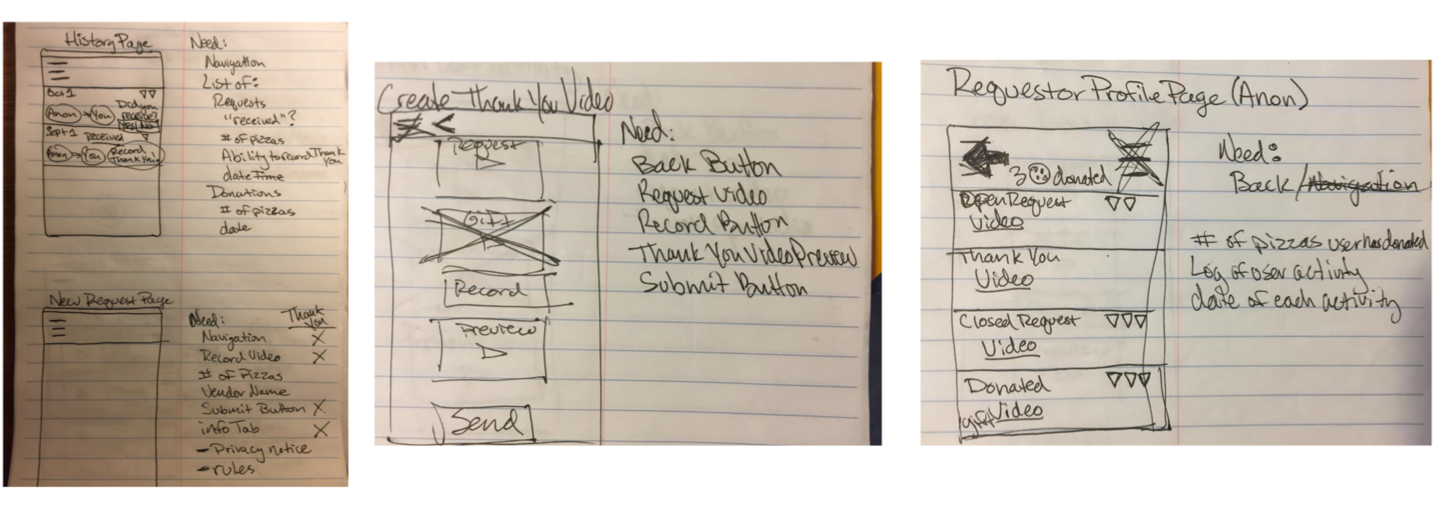 History Page
Oct 1
Did you
receive?
Yes/No
Anon → You
Sept 1 received
Anon → You Record
Thank You
Need:
Navigation
List of:
Requests
"received"?
# of pizzas
Ability to record Thank
You
date Time
Donations
# of pizzas
date
New Request Page
Need: Thank
You
Navigation X
Record Video X
# of Pizzas
Vendor Name
Submit Button X
info Tab X
- Privacy notice
- rules
Create Thank You Video
<
Request
Gift
Record
Preview
Send
Need:
Back Button
Request Video
Record Button
Thank You Video Preview
Submit Button
Requestor Profile Page (Anon)
3 donated
Open Request
Video
Thank You
Video
Closed Request
Video
Donated
gift Video
Need:
Back / Navigation
# of pizzas user has donated
Log of user activity
date of each activity